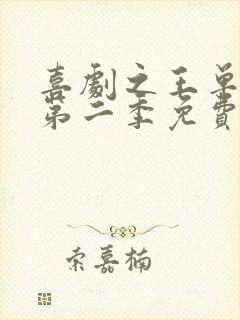 喜劇之王單
第二季免費
索嘉楠